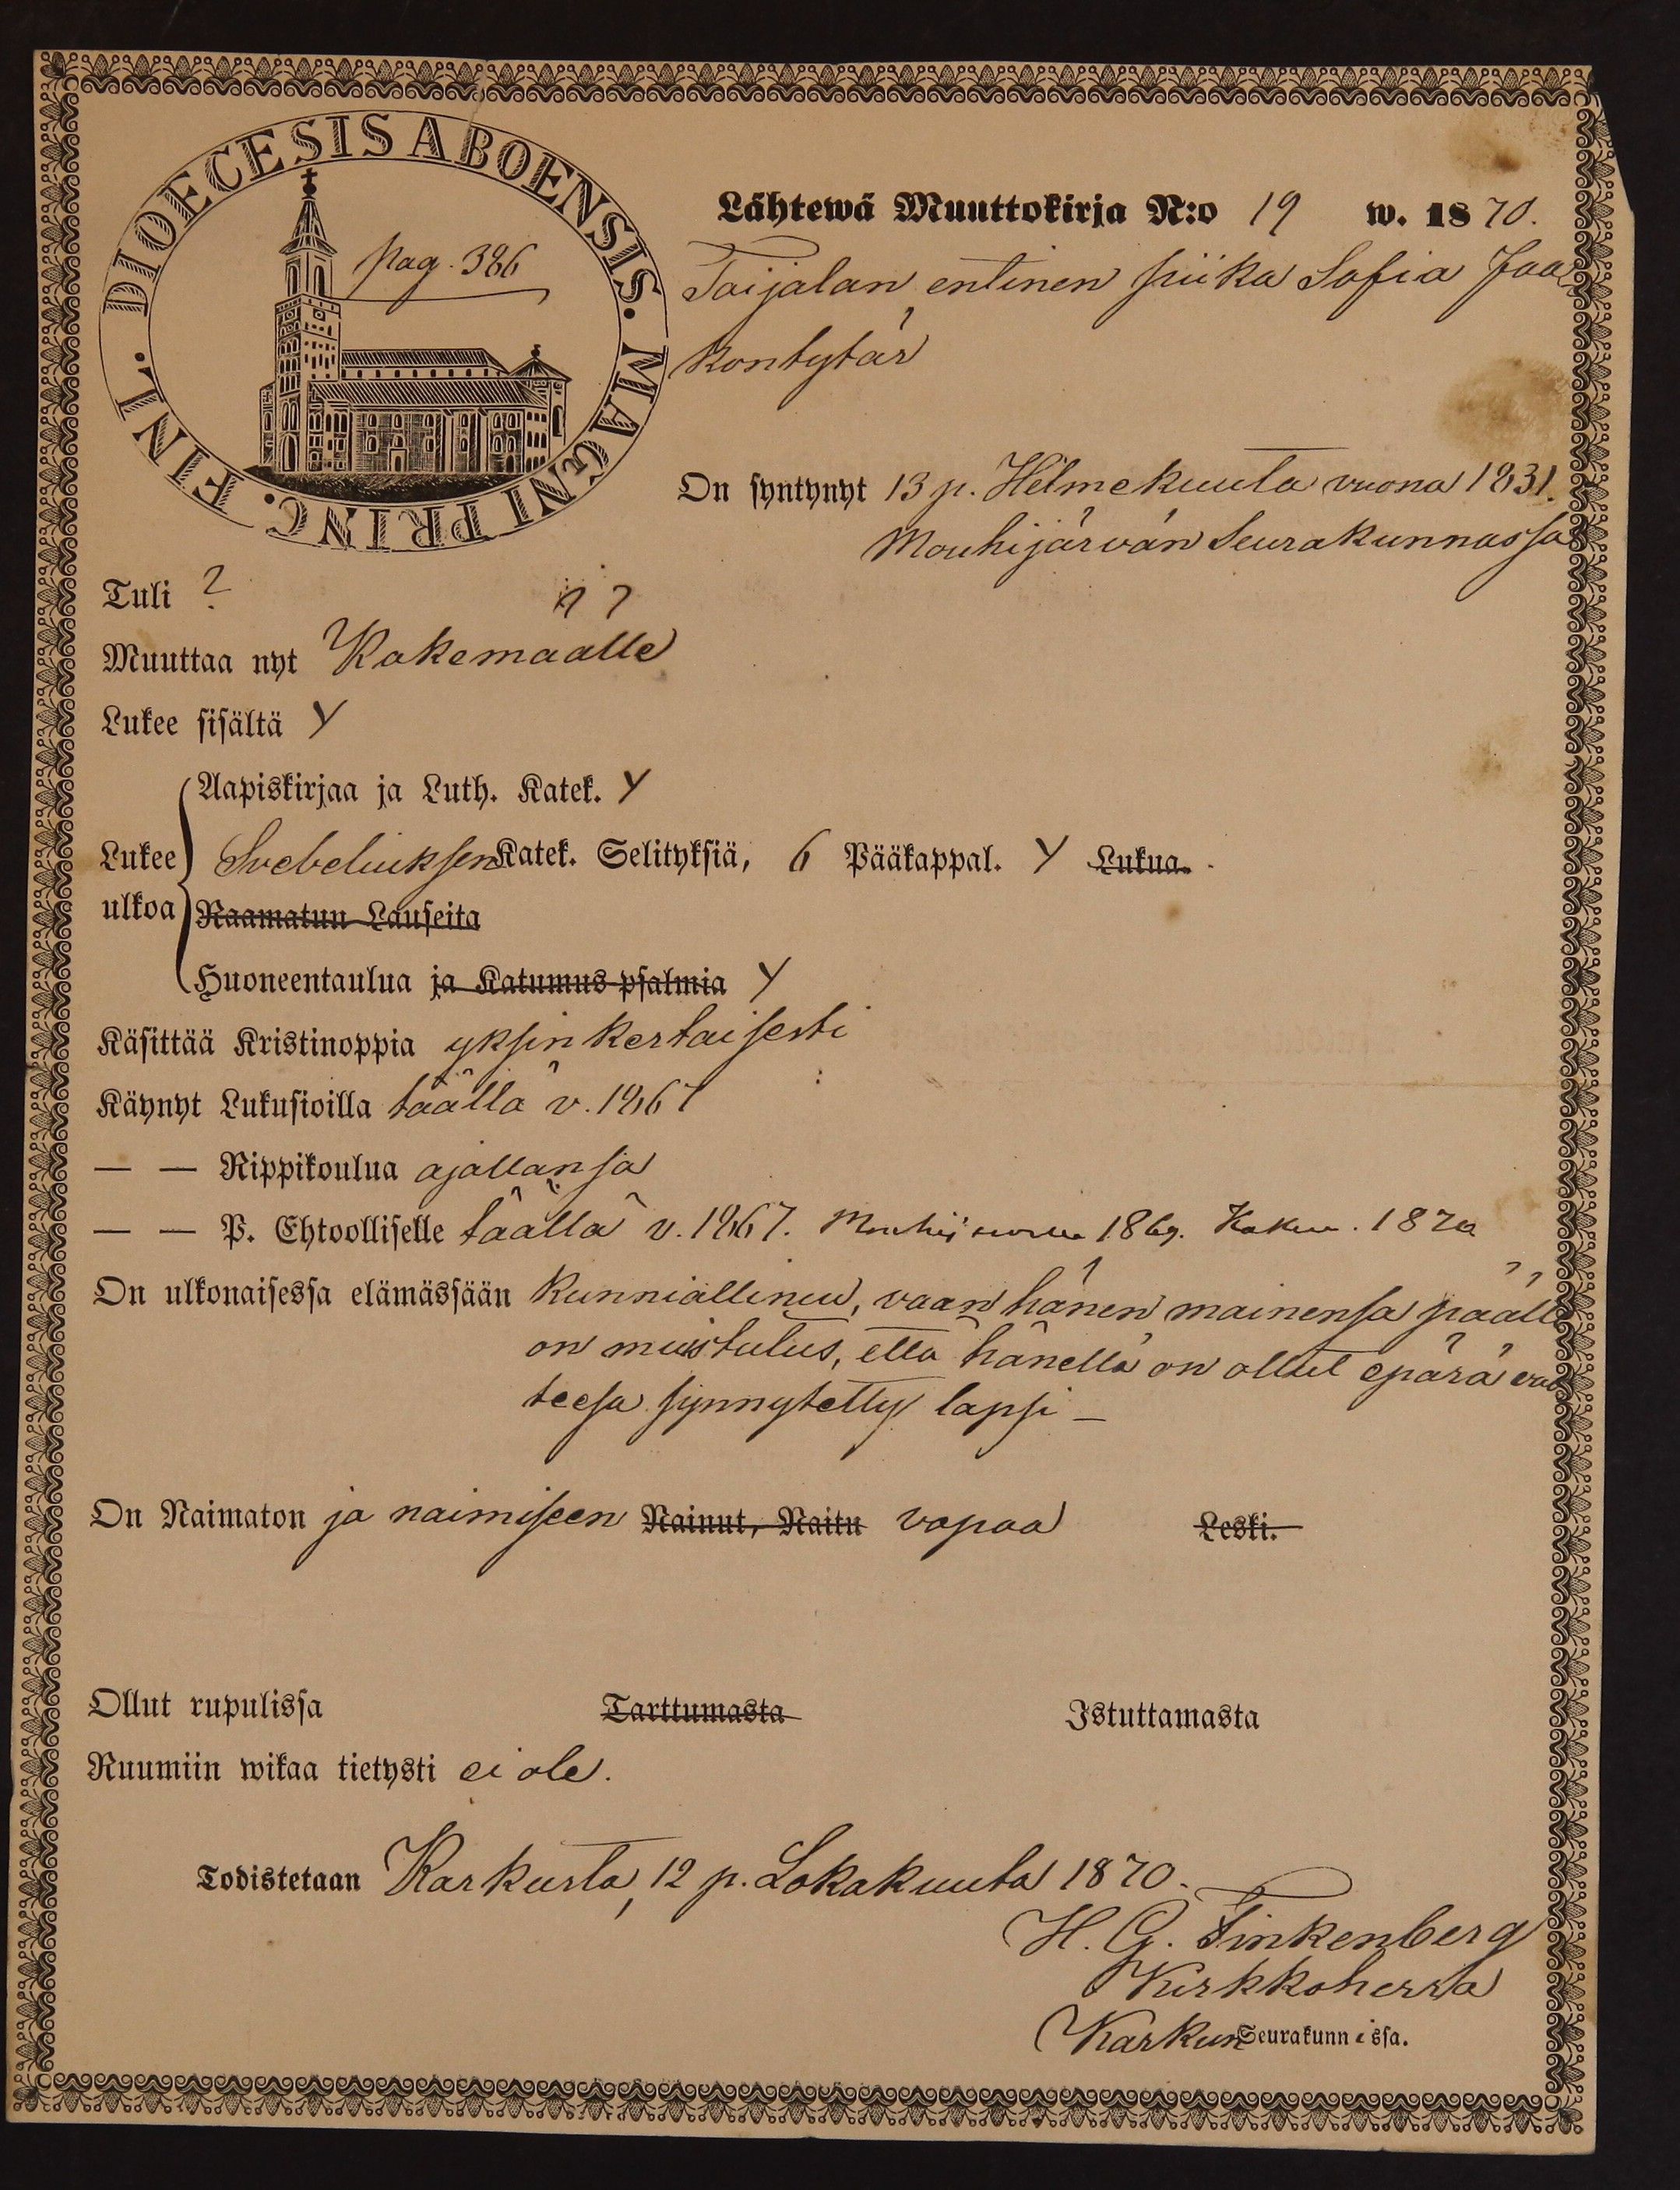 DIOECESIS ABOENSIS. MAGNI PRINC. FINL.
pag. 386
Lähtewä Muuttokirja N:o 19 w. 1870.
Taijalan entinen piika Sofia Jaa
kontytär
On syntynyt 13 p. Helmekuuta vuona 1831.
Mouhijärvän Seurakunnassa
Tuli ?
Muuttaa nyt Kokemäälle
Lukee sisältä Y
Aapiskirjaa ja Luth. Katek. Y
Lukee Svebeliuksen Katek. Selityksiä, 6 Pääkappal. Y Lukua.
ulkoa Raamatun Lauseita
Huoneentaulua ja Katumus-psalmia Y
Käsittää Kristinoppia yksinkertaisesti
Käynyt Lukusioilla täällä v. 1867
— — Rippikoulua ajallansa
— — P. Ehtoolliselle täällä v. 1867. 1869. 1870
On ulkonaisessa elämässään kunniallinen, vaan hänen mainensa päälle
on muistutus, että hänellä on ollut epärä
teesa synnytetty lapsi —
On Naimaton ja naimiseen Nainut, Naitu vapaa Leski.
Ollut rupulissa Tarttumasta Istuttamasta
Ruumiin wikaa tietysti ei ole.
Todistetaan Karkusta, 12 p. Lokakuuta 1870.
H. G. Finkenberg
Kirkkoherra
Karkun Seurakunnissa.